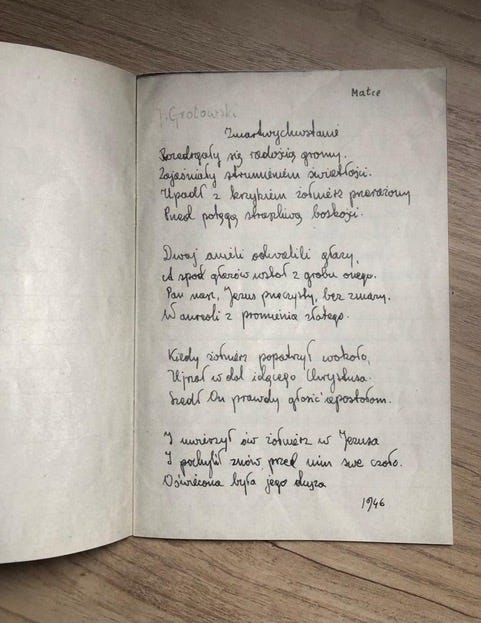 Matce
J. Grotowski
Zmartwychwstanie
Rozedrgały się radością gromy.
Zajaśniały strumieniem światłości.
Upadł z krzykiem żołnierz przerażony
Przed potęgą straszliwą boskości.
Dwaj anieli odwalili głazy,
A spod głazów wstał z grobu onego.
Pan nasz, Jezus przeczysty, bez zmazy.
W aureoli z promienia złotego.
Kiedy żołnierz popatrzył wokoło,
Ujrzał w dal idącego Chrystusa.
Szedł On prawdy głosić apostołom.
I uwierzył ów żołnierz w Jezusa
I pochylił znów przed nim swe czoło.
Oświecona była jego dusza
1946